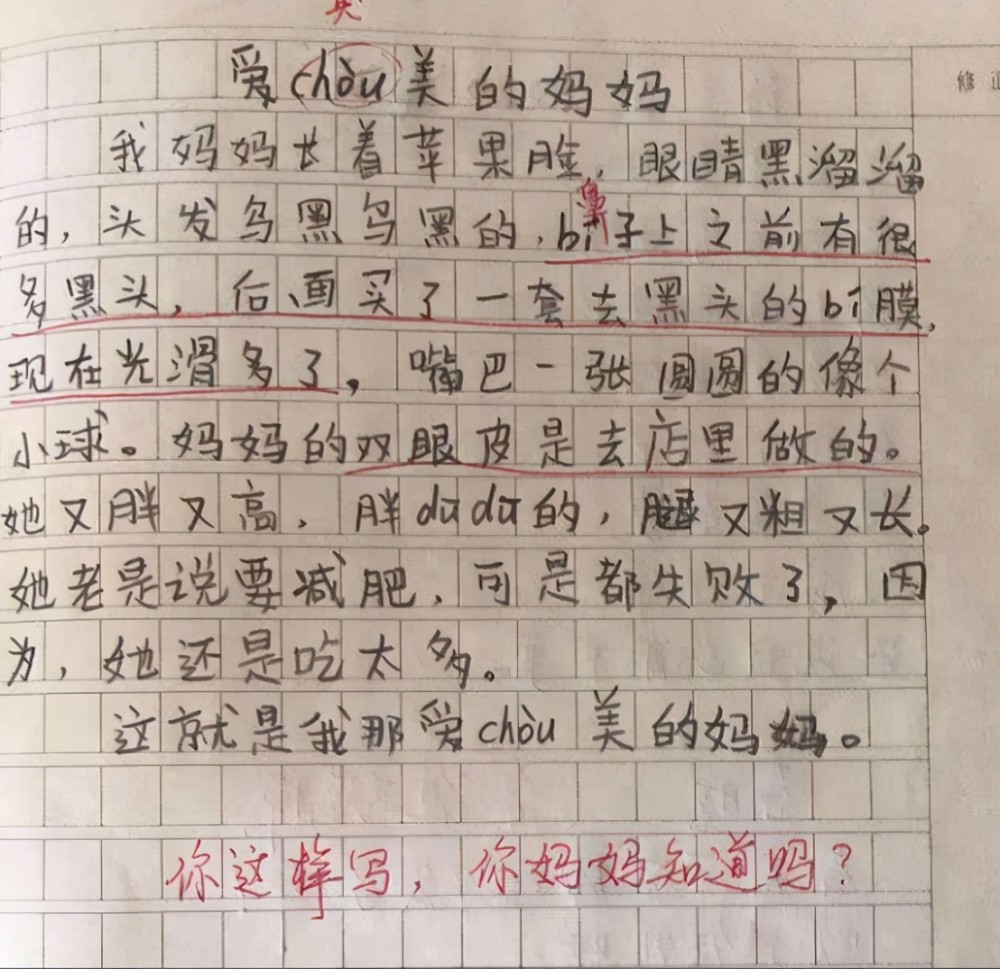 爱chòu美的妈妈
修正
我妈妈长着苹果脸，眼睛黑溜溜
的，头发乌黑乌黑的，bí鼻子上之前有很
多黑头，后面买了一套去黑头的bí膜，
现在光滑多了，嘴巴一张圆圆的像个
小球。妈妈的双眼皮是去店里做的。
她又胖又高，胖dūdū的，腿又粗又长。
她老是说要减肥，可是都失败了，因
为，她还是吃太多。
这就是我那爱chòu美的妈妈。
你这样写，你妈妈知道吗？